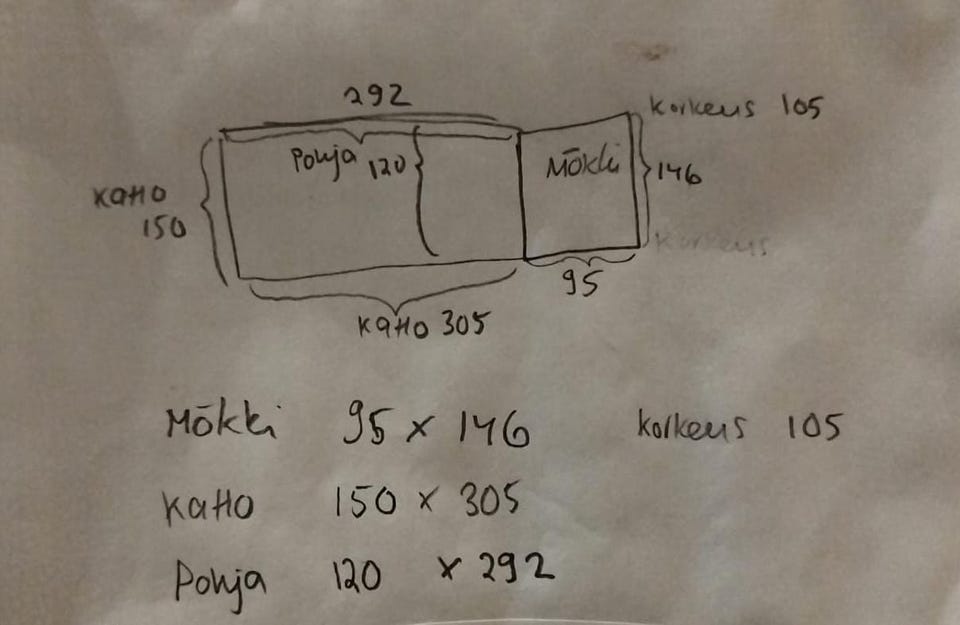 292
korkeus 105
Pohja 120
Mökki
146
Katto
150
korkeus
95
Katto 305
Mökki 95 x 146 korkeus 105
Katto 150 x 305
Pohja 120 x 292